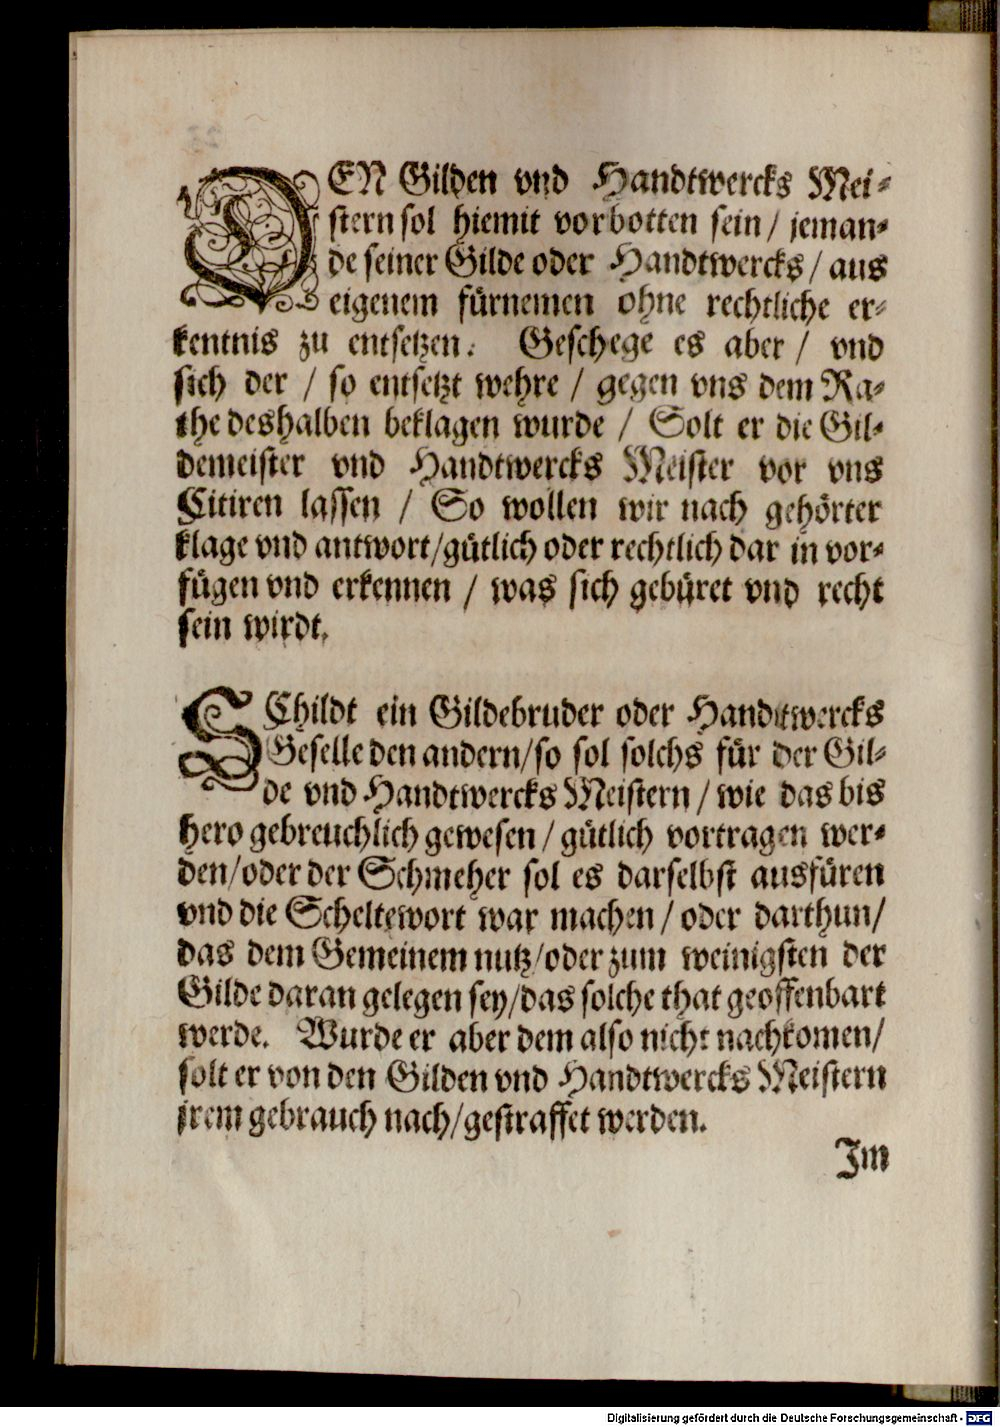 DEN Gilden vnd Handtwercks Mei-
stern sol hiemit vorbotten sein / jeman-
de seiner Gilde oder Handtwercks / aus
eigenem fürnemen ohne rechtliche er-
kentnis zu entsetzen. Geschege es aber / vnd
sich der / so entsetzt wehre / gegen vns dem Ra-
the deshalben beklagen wurde / Solt er die Gil-
demeister vnd Handtwercks Meister vor vns
Citiren lassen / So wollen wir nach gehörter
klage vnd antwort/gütlich oder rechtlich dar in vor-
fügen vnd erkennen / was sich gebüret vnd recht
sein wirdt.
SChildt ein Gildebruder oder Handtwercks
Geselle den andern/so sol solchs für der Gil-
de vnd Handtwercks Meistern / wie das bis
hero gebreuchlich gewesen / gütlich vortragen wer-
den/oder der Schmeher sol es darselbst ausfüren
vnd die Scheltewort war machen / oder darthun/
das dem Gemeinem nutz/oder zum weinigsten der
Gilde daran gelegen sey/das solche that geoffenbart
werde. Wurde er aber dem also nicht nachkomen/
solt er von den Gilden vnd Handtwercks Meistern
jrem gebrauch nach/gestraffet werden.
Jm
Digitalisierung gefördert durch die Deutsche Forschungsgemeinschaft - DFG